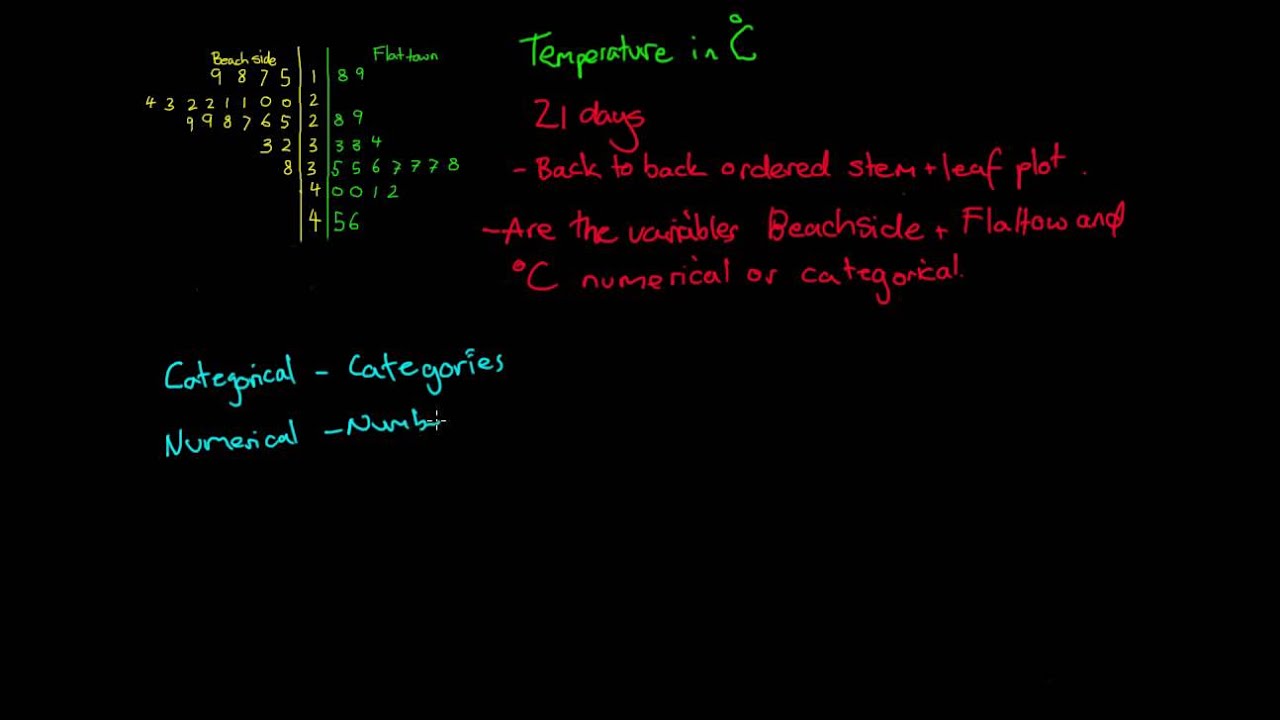 Beach side Flat town
9 8 7 5 1 8 9
4 3 2 2 1 1 0 0 2
9 9 8 7 6 5 2 8 9
3 2 3 3 3 4
8 3 5 5 6 7 7 7 8
4 0 0 1 2
4 5 6
Temperature in °C
21 days
- Back to back ordered stem + leaf plot.
- Are the variables Beachside + Flattow and
°C numerical or categorical.
Categorical - Categories
Numerical - Numb